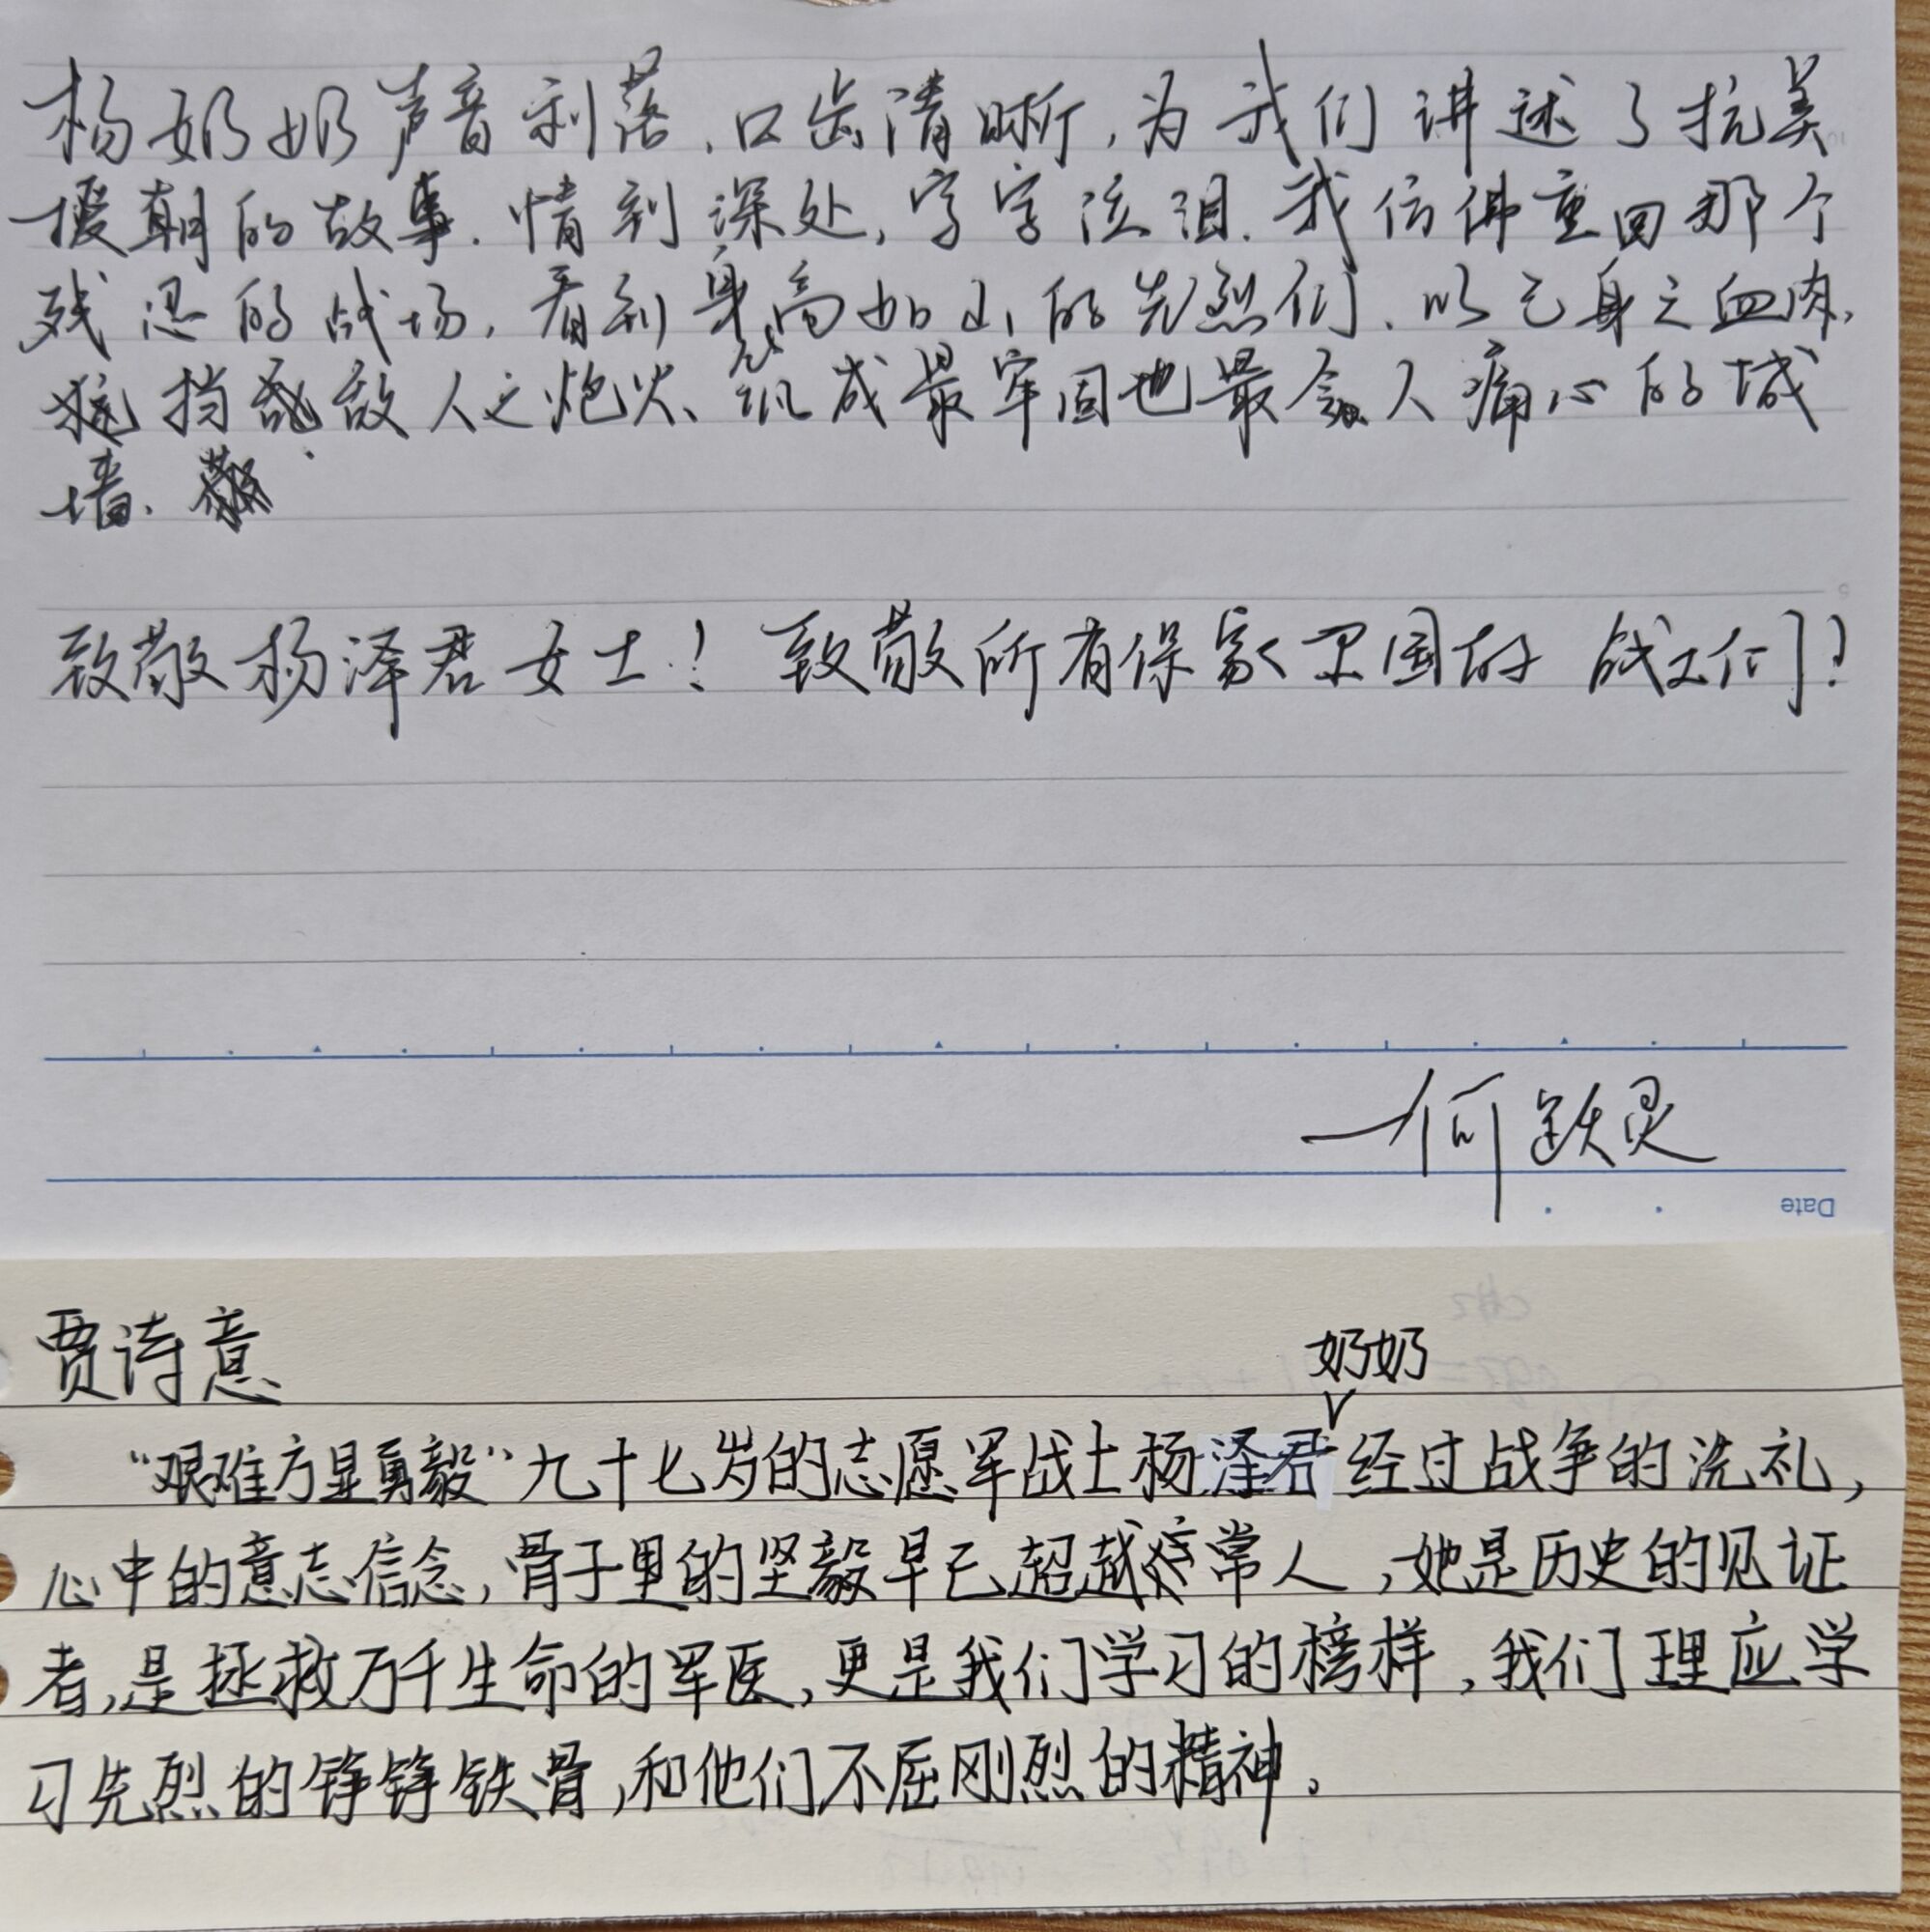 杨奶奶声音利落，口齿清晰，为我们讲述了抗美
援朝的故事．情到深处，字字泣泪．我仿佛重回那个
残忍的战场，看到身高如山的先烈们、以己身之血肉，
挡敌人之炮火、筑成最牢固也最令人痛心的城
墙．
致敬杨泽君女士！致敬所有保家卫国的战士们！
—何跃灵
Date
贾诗意
奶奶
“艰难方显勇毅”九十七岁的志愿军战士杨泽君经过战争的洗礼，
心中的意志信念，骨子里的坚毅早已超越常人，她是历史的见证
者，是拯救万千生命的军医，更是我们学习的榜样，我们理应学
习先烈的铮铮铁骨，和他们不屈刚烈的精神。